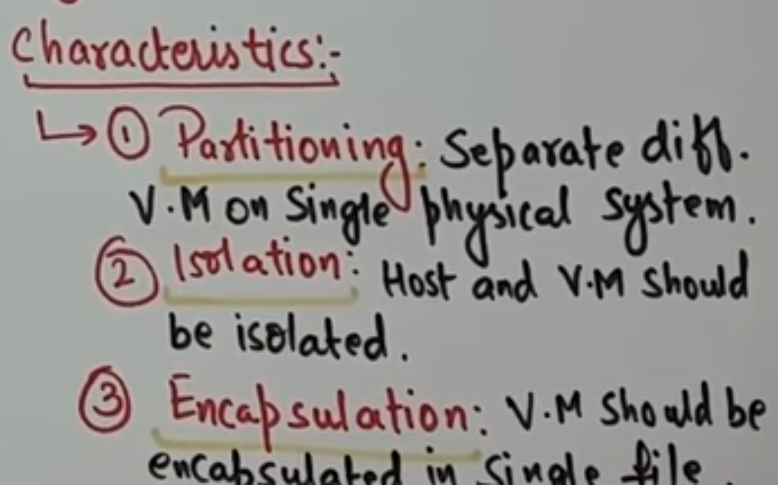 Characteristics:-
↳ ① Partitioning: Separate diff.
V.M on Single physical system.
② Isolation: Host and V.M should
be isolated.
③ Encapsulation: V.M should be
encapsulated in single file.